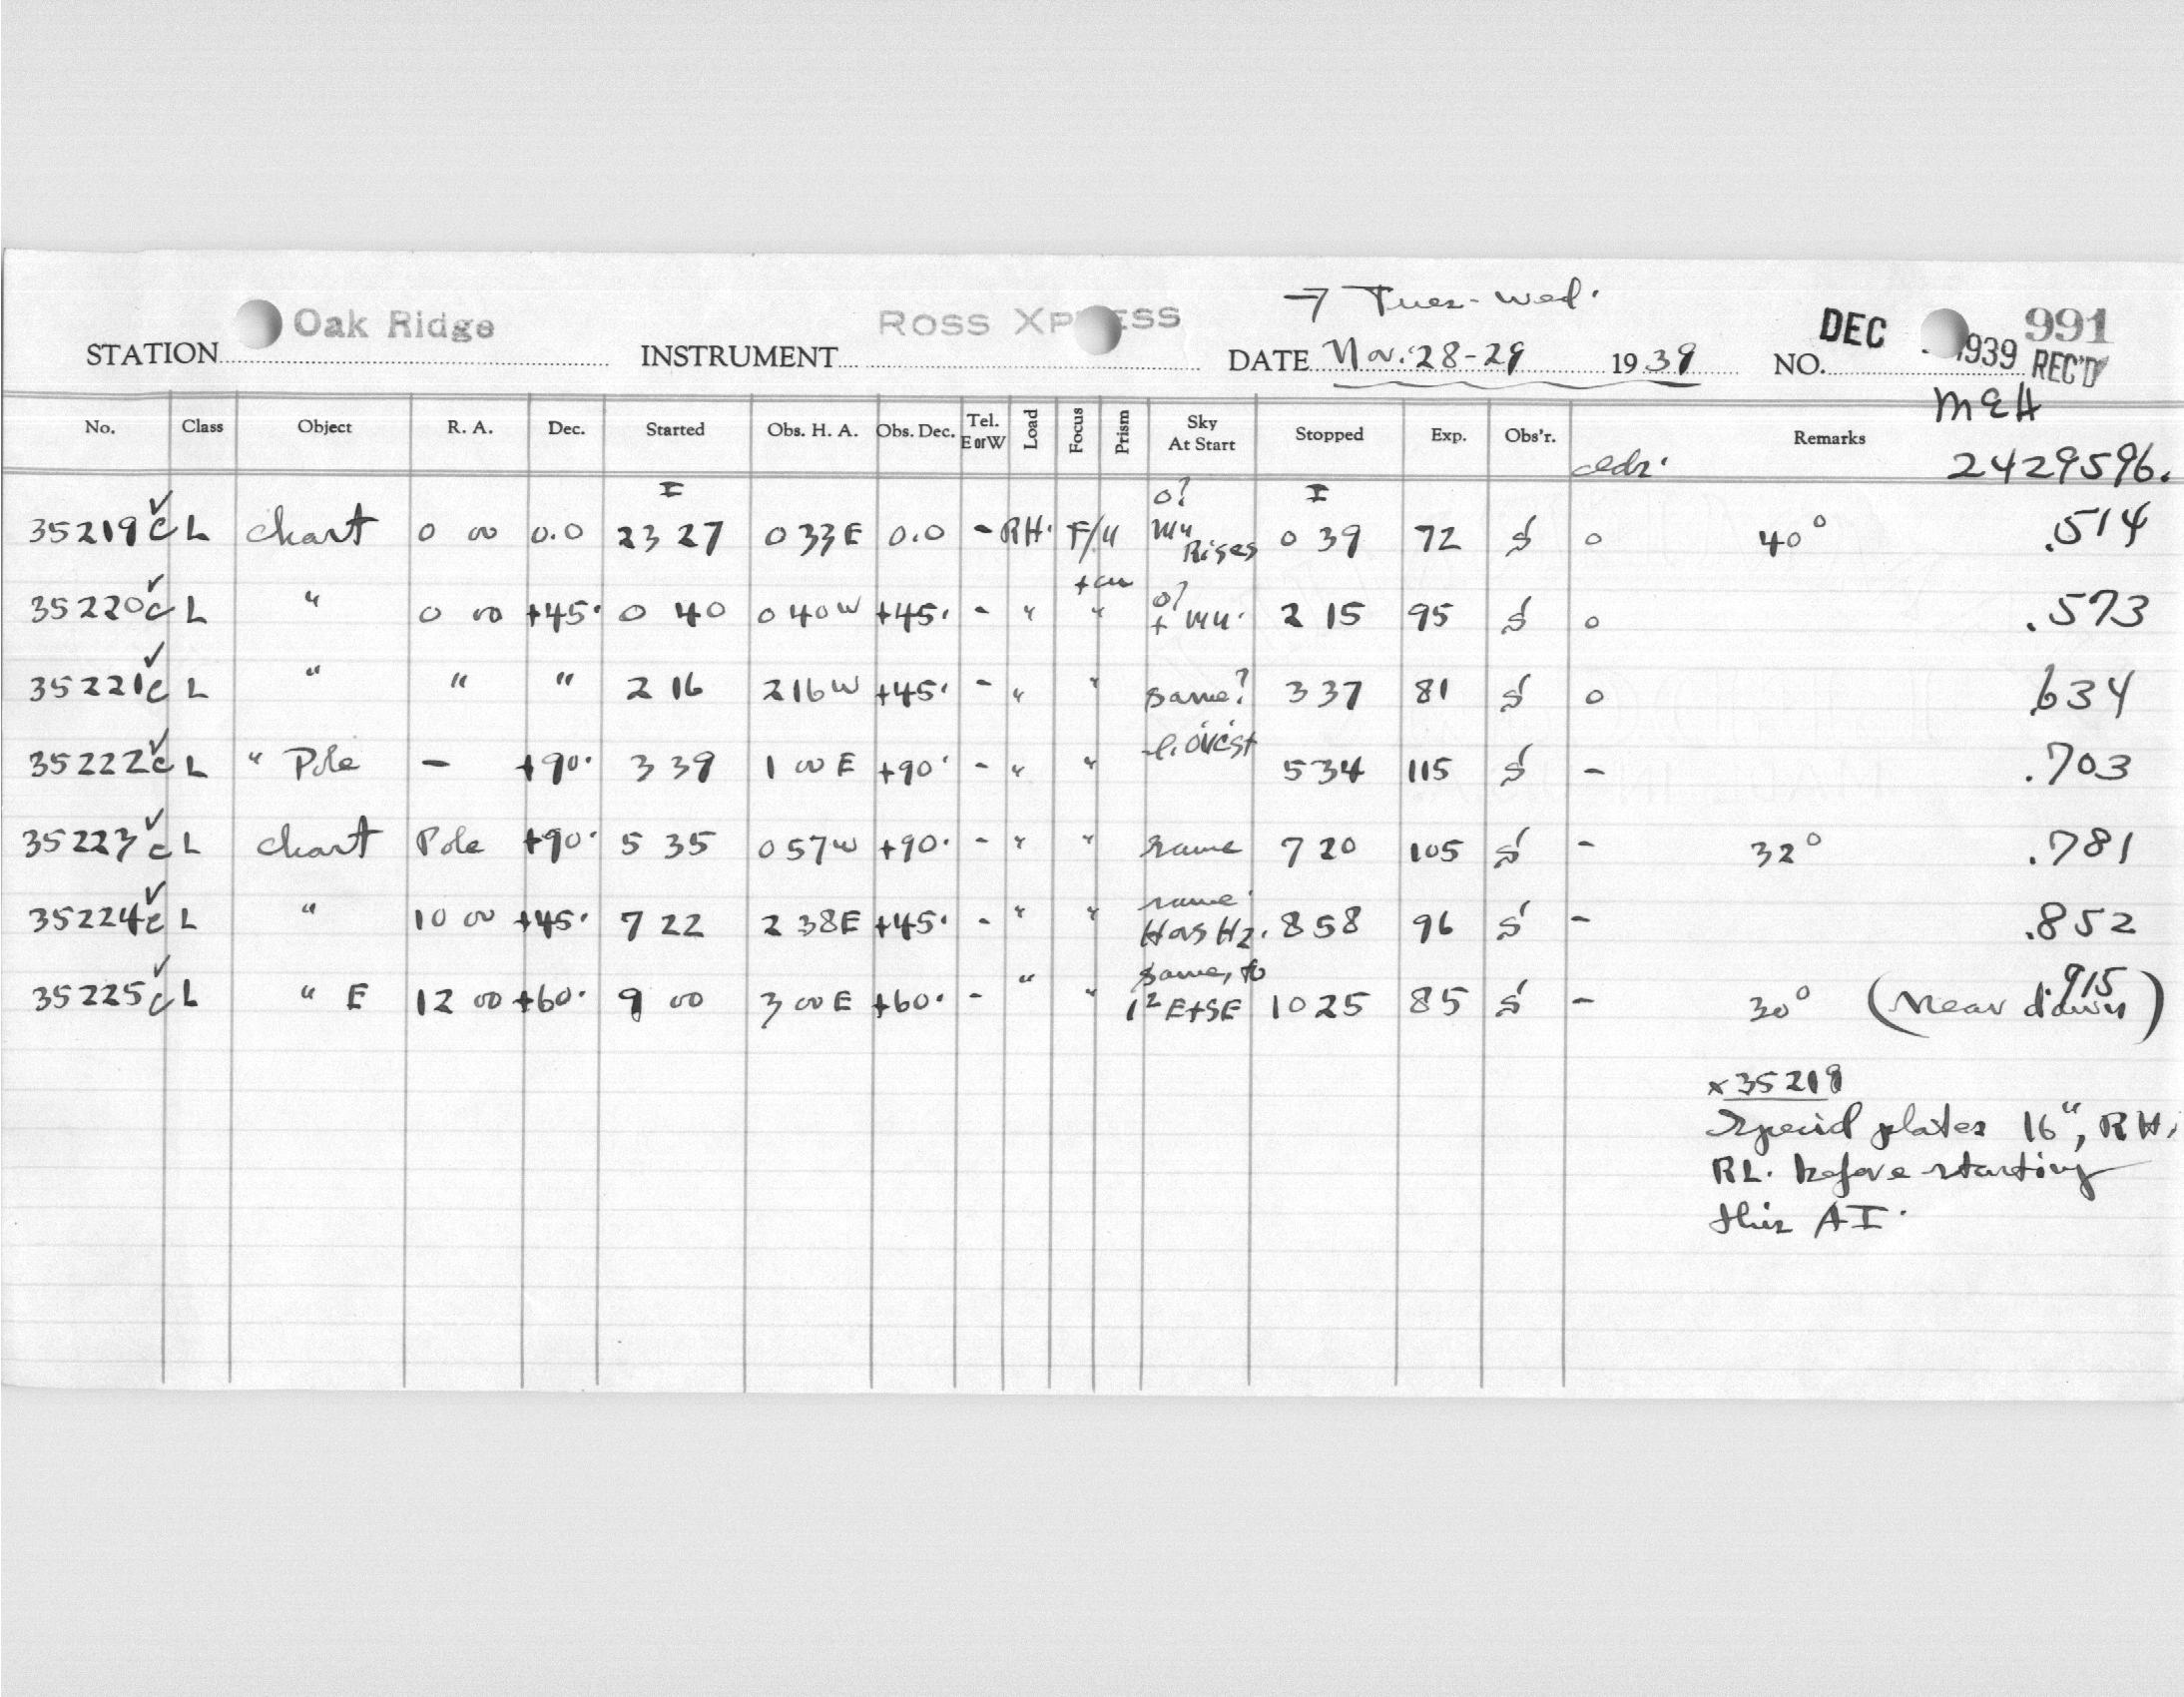 → Tues-Wed.
STATION Oak Ridge INSTRUMENT ROSS XPRESS DATE Nov. 28-29 1939 NO. 991
DEC 1939 REC'D
M&H
No. Class Object R. A. Dec. Started Obs. H. A. Obs. Dec. Tel. E or W Load Focus Prism Sky At Start Stopped Exp. Obs'r. Remarks
2429596.
I o? I
35219 c L chart 0 00 0.0 23 27 0 33 E 0.0 - RH. Rises 0 39 72 S 0 40° .514
35220 c L " 0 00 +45. 0 40 0 40 W +45. - " " o? 2 15 95 S 0 .573
35221 c L " " " 2 16 2 16 W +45. - " " same? 3 37 81 S 0 .634
35222 c L " Pole - +90. 3 39 1 00 E +90. - " " 5 34 115 S - .703
35223 c L chart Pole +90. 5 35 0 57 W +90. - " " same 7 20 105 S - 32° .781
35224 c L " 10 00 +45. 7 22 2 38 E +45. - " " same. Has Hz. 8 58 96 S - .852
35225 c L " E 12 00 +60. 9 00 3 00 E +60. - " " same, to 1² E+SE 10 25 85 S - 30° (Near dawn) .915
x 35219
Special plates 16", RH,
RL. before starting
this AI.